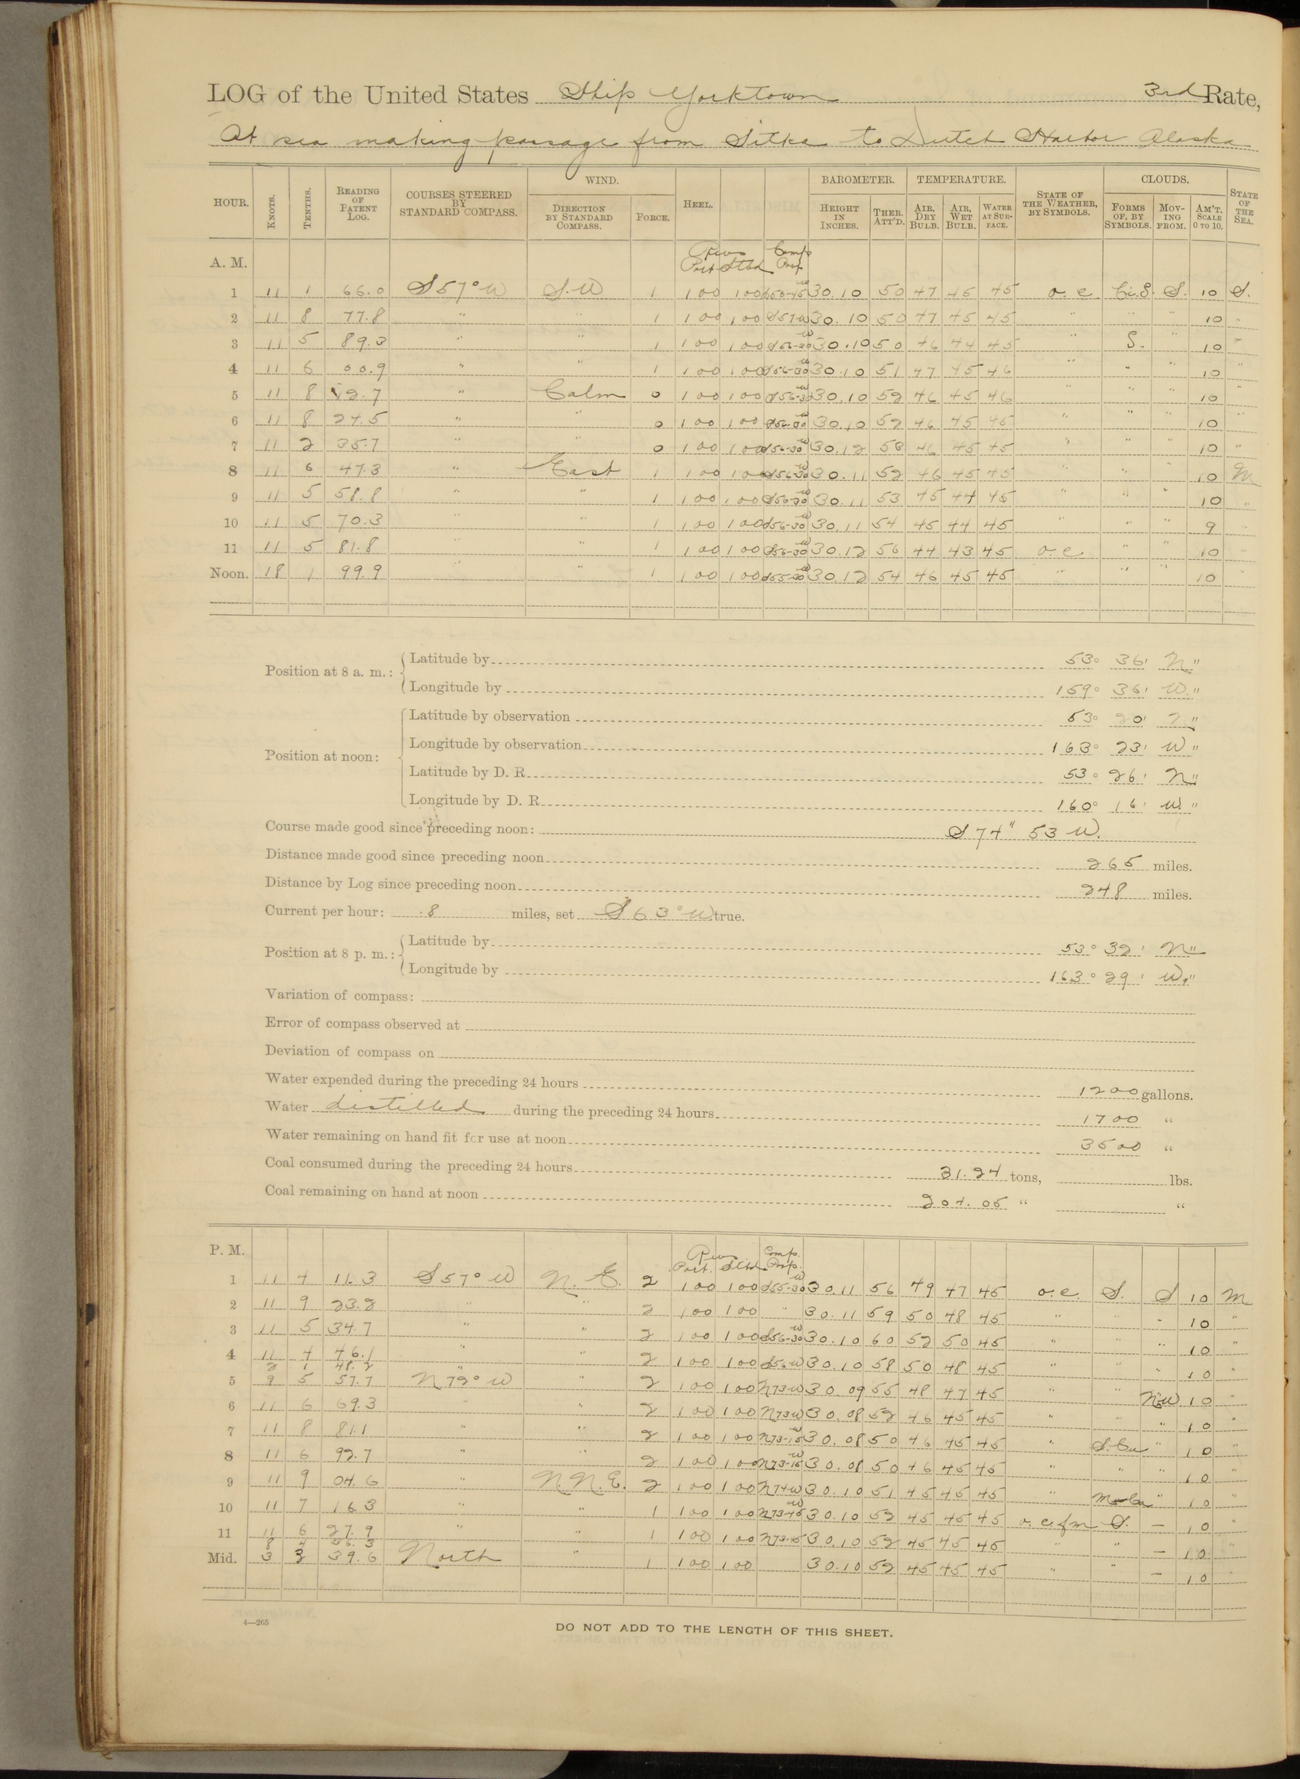 LOG of the United States Ship Yorktown 3rd Rate,
At sea making passage from Sitka to Dutch Harbor Alaska
HOUR. KNOTS. TENTHS. READING OF PATENT LOG. COURSES STEERED BY STANDARD COMPASS. WIND. DIRECTION BY STANDARD COMPASS. FORCE. HEEL. BAROMETER. HEIGHT IN INCHES. THER. ATT'D. TEMPERATURE. AIR, DRY BULB. AIR, WET BULB. WATER AT SURFACE. STATE OF THE WEATHER, BY SYMBOLS. CLOUDS. FORMS OF, BY SYMBOLS. MOVING FROM. AM'T. SCALE 0 TO 10. STATE OF THE SEA.
A. M. Revs Port Stbd Comp Prsp
1 11 1 66.0 S 57° W S.W 1 100 100 30.10 50 47 45 45 o. c Ci.S. S. 10 S.
2 11 8 77.8 " " 1 100 100 S57W 30.10 50 47 45 45 " " " 10 "
3 11 5 89.3 " " 1 100 100 S56-30W 30.10 50 46 44 45 S. " 10 "
4 11 6 00.9 " " 1 100 100 S56-30W 30.10 51 47 45 46 " " " 10 "
5 11 8 12.7 " Calm 0 100 100 S56-30W 30.10 52 46 45 46 " " " 10
6 11 8 24.5 " " 0 100 100 S56-30W 30.10 52 46 45 45 " " " 10
7 11 2 35.7 " " 0 100 100 S56-30W 30.12 53 46 45 45 " " " 10 "
8 11 6 47.3 " East 1 100 100 S56-30W 30.11 52 46 45 45 " " " 10 M
9 11 5 58.8 " " 1 100 100 S56-30W 30.11 53 45 44 45 " " " 10 "
10 11 5 70.3 " " 1 100 100 S56-30W 30.11 54 45 44 45 " " " 9 "
11 11 5 81.8 " " 1 100 100 S56-30W 30.12 56 44 43 45 o. c " " 10
Noon. 18 1 99.9 " " 1 100 100 S55-30W 30.12 54 46 45 45 " " " 10
Position at 8 a. m.: Latitude by 53° 36' N"
Longitude by 159° 36' W."
Position at noon: Latitude by observation 53° 20' N"
Longitude by observation 163° 23' W"
Latitude by D. R. 53° 26' N"
Longitude by D. R. 160° 16' W"
Course made good since preceding noon: S 74" 53 W.
Distance made good since preceding noon 265 miles.
Distance by Log since preceding noon 248 miles.
Current per hour: .8 miles, set S 63° W true.
Position at 8 p. m.: Latitude by 53° 32' N"
Longitude by 163° 29' W."
Variation of compass:
Error of compass observed at
Deviation of compass on
Water expended during the preceding 24 hours 1200 gallons.
Water distilled during the preceding 24 hours 1700 "
Water remaining on hand fit for use at noon 3500 "
Coal consumed during the preceding 24 hours 31.24 tons, lbs.
Coal remaining on hand at noon 204.05 " "
P. M. Revs Port. Stbd Comp. Prsp.
1 11 4 11.3 S 57° W N. E. 2 100 100 S55-30W 30.11 56 49 47 45 o. c. S. S 10 M
2 11 9 23.2 " " 2 100 100 " 30.11 59 50 48 45 " " " 10 "
3 11 5 34.7 " " 2 100 100 S56-30W 30.10 60 52 50 45 " " " 10 "
4 11 4 46.1 " " 2 100 100 S56W 30.10 58 50 48 45 " " " 10 "
2 1 48.2
5 9 5 57.7 N 72° W " 2 100 100 N73-W 30.09 55 48 47 45 " " NW 10 "
6 11 6 69.3 " " 2 100 100 N73W 30.08 52 46 45 45 " " " 10 "
7 11 8 81.1 " " 2 100 100 N73-15W 30.08 50 46 45 45 " S.Cu " 10 "
8 11 6 92.7 " " 2 100 100 N73-15W 30.08 50 46 45 45 " " " 10 "
9 11 9 04.6 " N N. E. 2 100 100 N74W 30.10 51 45 45 45 " " 10 "
10 11 7 16.3 " " 1 100 100 N73-45W 30.10 52 45 45 45 o. c. f. m S. — 10 "
11 11 6 27.9 " " 1 100 100 N73-15 30.10 52 45 45 45 " " — 10 "
8 4 36.3
Mid. 3 3 39.6 North 1 100 100 30.10 52 45 45 45 " " — 10 "
4—265
DO NOT ADD TO THE LENGTH OF THIS SHEET.